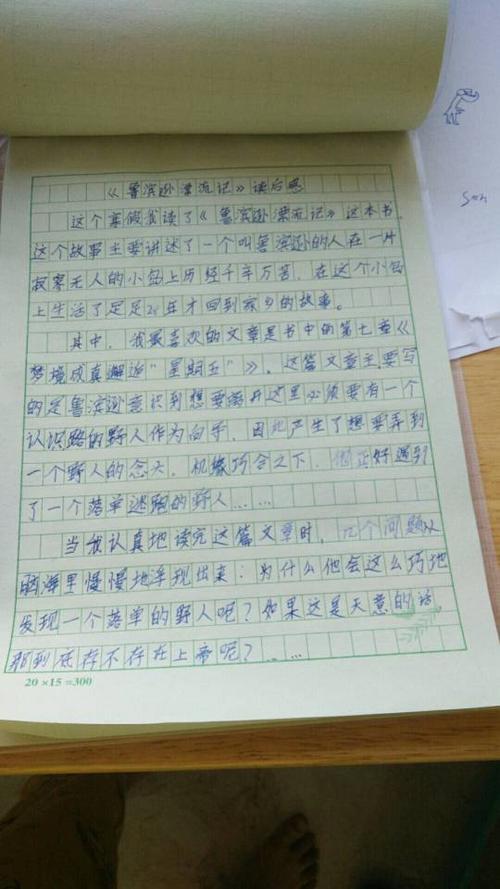 《鲁滨逊漂流记》读后感
这个寒假我读了《鲁滨逊漂流记》这本书,
这个故事主要讲述了一个叫鲁滨逊的人在一片
寂寞无人的小岛上历经千辛万苦,在这个小岛
上生活了足足28年才回到家乡的故事。
其中,我最喜欢的文章是书中的第七章《
梦境成真邂逅“星期五”》。这篇文章主要写
的是鲁滨逊意识到想要离开这里必须要有一个
认识路的野人作为向导,因此产生了想要弄到
一个野人的念头。机缘巧合之下,他正好遇到
了一个落单逃跑的野人……
当我认真地读完这篇文章时,几个问题从
脑海里慢慢地浮现出来:为什么他会这么巧地
发现一个落单的野人呢?如果这是天意的话
那到底存不存在上帝呢?……
20×15=300